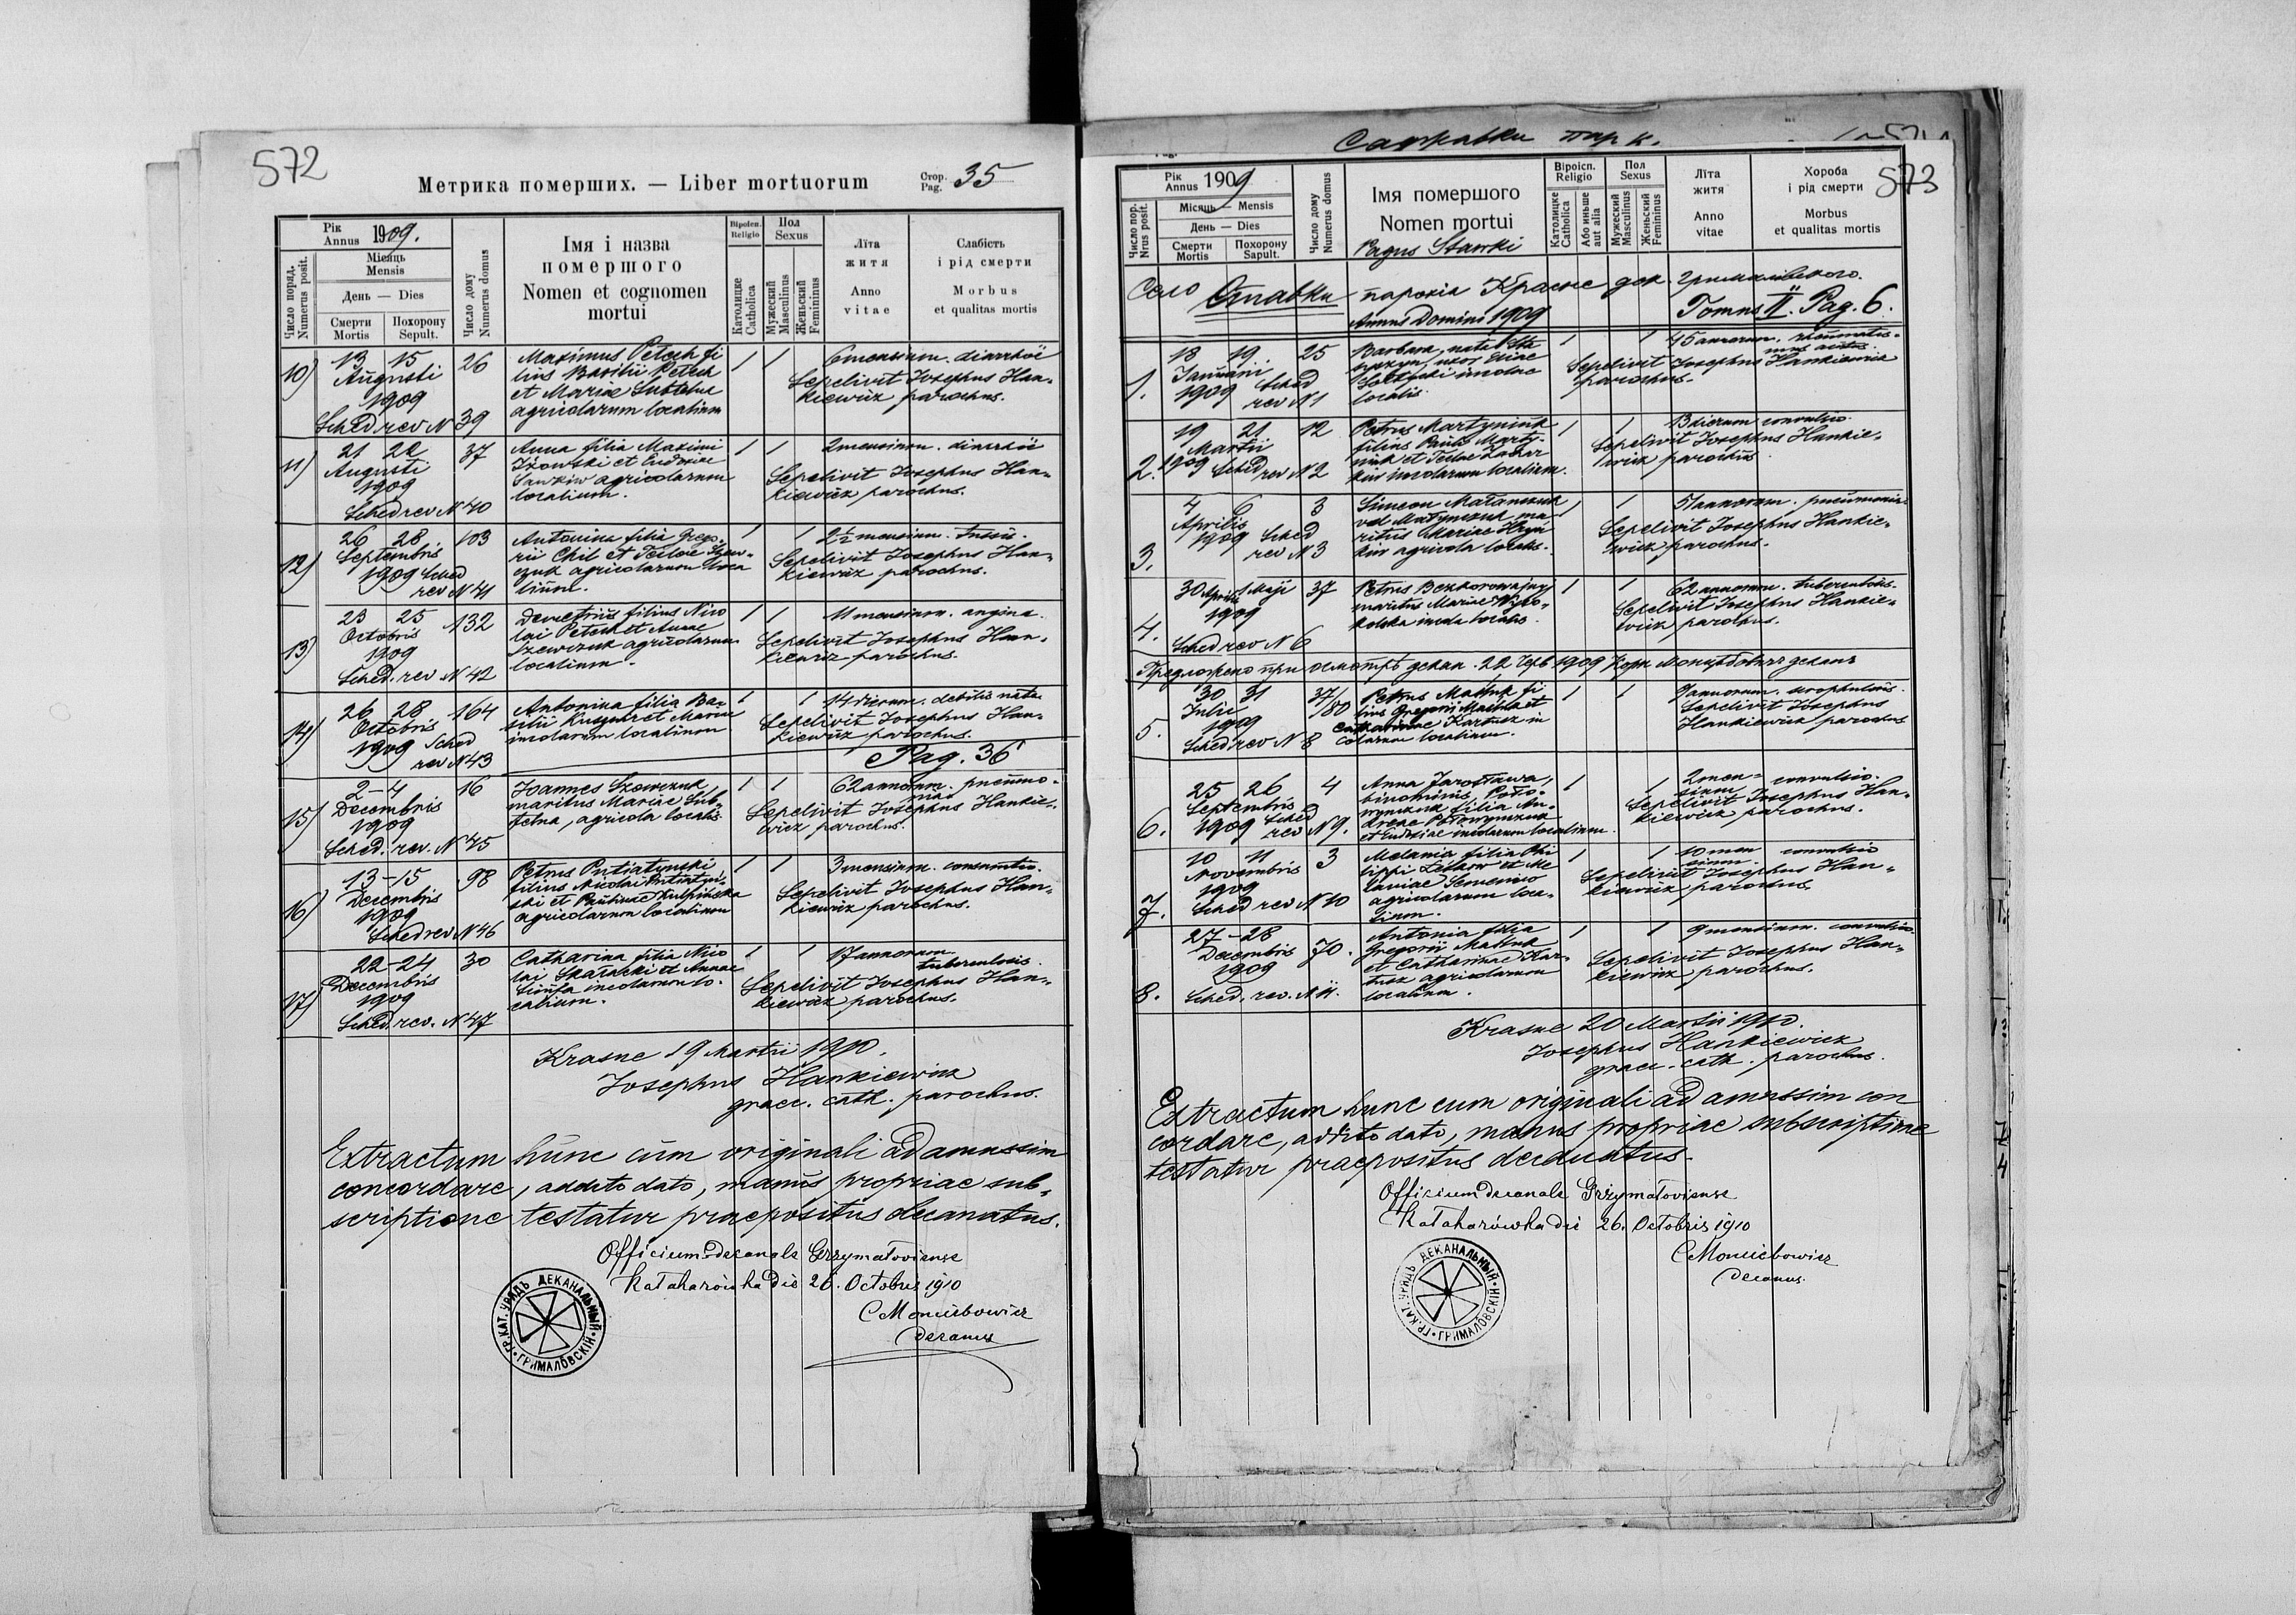 572
Метрика померших. — Liber mortuorum
Стор. Pag. 35
Число поряд. Numerus posit.
Рік Annus 1909.
Місяць Mensis
День — Dies
Смерти Mortis
Похорону Sepult.
Число дому Numerus domus
Імя і назва
помершого
Nomen et cognomen
mortui
Віроісп. Religio
Католицке Catholica
Пол Sexus
Мужеский Masculinus
Женьский Femininus
Лїта
житя
Anno
vitae
Слабість
і рід смерти
Morbus
et qualitas mortis
10) 13 15 Augusti 1909 26
Sched rev N 39
Maximus Petech fi
lius Basilii Petech
et Mariae Subtelna
agricolarum localium
1 1 6 mensium. diarrhoë
Sepelivit Josephus Han-
kiewicz parochus.
11) 21 22 Augusti 1909 37
Sched rev N 40
Anna filia Maximi
Iżowski et Eudoxiae
Sawkiw agricolarum
localium.
1 1 2 mensium. diarrhoë
Sepelivit Josephus Han-
kiewicz parochus.
12) 26 28 Septembris 1909 103
Sched rev N 41
Antonina filia Grego-
rii Chil et Teclae Szew-
czuk agricolarum loca
lium.
1 1 2½ mensium. tussis.
Sepelivit Josephus Han-
kiewicz parochus.
13) 23 25 Octobris 1909 132
Sched. rev N 42
Demetrius filius Nico
lai Petech et Annae
Szewczuk agricolarum
localium.
1 1 11 mensium. angina.
Sepelivit Josephus Han-
kiewicz parochus.
14) 26 28 Octobris 1909 164
Sched rev N 43
Antonina filia Ba-
silii et Mariae
incolarum localium
1 1 14 dierum. debilis nata.
Sepelivit Josephus Han-
kiewicz parochus.
Pag. 36
15) 2-4 Decembris 1909 16
Sched. rev. N 45
Joannes Szewczuk
maritus Mariae Sub-
telna, agricola localis.
1 1 62 annorum. pneumo-
nia
Sepelivit Josephus Hankie-
wicz parochus.
16) 13-15 Decembris 1909 98
Sched rev N 46
Petrus Putiatynski
filius Nicolai Putiatyn-
ski et Paulinae Kulpinska
agricolarum localium
1 1 3 mensium. consumtio.
Sepelivit Josephus Han-
kiewicz parochus.
17) 22-24 Decembris 1909 30
Sched. rev. N 47
Catharina filia Nico
lai Skaracki et Annae
incolarum lo-
calium.
1 1 17 annorum.
tuberculosis.
Sepelivit Josephus Han-
kiewicz parochus.
Krasne 19 Martii 1910.
Josephus Hankiewicz
graec. cath. parochus.
Extractum hunc cum originali ad amussim
concordare, addito dato, manus propriae sub-
scriptione testatur praepositus decanatus.
Officium decanale Grzymałoviense
Kałaharówka die 26. Octobris 1910
CMoncibowicz
decanus
ГР.КАТ. УРЯДЪ ДЕКАНАЛЬНЫЙ • ГРИМАЛОВСКІЙ •
Садкавки пар к.
573
Число пор. Nrus posit.
Рік Annus 1909
Місяць — Mensis
День — Dies
Смерти Mortis
Похорону Sapult.
Число дому Numerus domus
Імя помершого
Nomen mortui
Pagus Stawki
Віроісп. Religio
Католицке Catholica
Або иньше aut alia
Пол Sexus
Мужеский Masculinus
Женьский Femininus
Лїта
житя
Anno
vitae
Хороба
і рід смерти
Morbus
et qualitas mortis
Село Ставки парохія Красне дек. Грималівского.
Annus Domini 1909 Tomus II. Pag. 6.
1. 18 19 Januarii 1909 25
Sched rev N 1
Barbara, nata Sta
uxor Eliae
incolae
localis.
1 1 45 annorum. rheumatis-
mus acutus.
Sepelivit Josephus Hankiewicz
parochus.
2. 19 21 Martii 1909 12
Sched rev N 2
Petrus Martyniuk
filius Pauli Marty-
niuk et Teclae Zachar
kiw incolarum localium.
1 1 13 dierum convulsio.
Sepelivit Josephus Hankie-
wicz parochus.
3. 4 6 Aprilis 1909 3
Sched rev N 3
Simeon Matanczuk
vel Matynczuk ma-
ritus Mariae Hryń
kiw agricola localis.
1 1 51 annorum. pneumonia
Sepelivit Josephus Hankie-
wicz parochus.
4. 30 Aprilis 1 Maji 1909 37
Sched rev N 6
Petrus Bezkorowajnyj
maritus Mariae Wyso-
kolska incola localis.
1 1 62 annorum. tuberculosis.
Sepelivit Josephus Hankie-
wicz parochus.
Предложено при осмотрѣ декан. 22 Черв 1909 Корн Монцѣбовичъ деканъ
5. 30 31 Julii 1909 37/80
Sched rev N 8
Petrus Maśluk fi
lius Gregorii Maśluk et
Catharinae Kartusz in
colarum localium.
1 1 9 annorum. scrophulosis.
Sepelivit Josephus
Hankiewicz parochus
6. 25 26 Septembris 1909 4
Sched rev N 9.
Anna Jarosława,
binominis, Poło-
wynczuk filia An-
dreae Połowynczuk
et Eudoxiae incolarum localium.
1 1 2 men-
sium convulsio.
Sepelivit Josephus Han-
kiewicz parochus.
7. 10 11 Novembris 1909 3
Sched rev N 10
Melania filia Phi
lippi et Me
laniae Semeniw
agricolarum loca-
lium.
1 1 10 men
sium. convulsio
Sepelivit Josephus Han-
kiewicz parochus.
8. 27-28 Decembris 1909 70.
Sched. rev. N 11.
Antonia filia
Gregorii Maśluk
et Catharinae Kar-
tusz agricolarum
localium.
1 1 9 mensium. convulsio.
Sepelivit Josephus Han-
kiewicz parochus.
Krasne 20 Martii 1910.
Josephus Hankiewicz
graec. cath. parochus.
Extractum hunc cum originali ad amussim con
cordare, addito dato, manus propriae subscriptione
testatur praepositus decanatus.
Officium decanale Grzymałoviense
Kałaharówka die 26. Octobris 1910
CMoncibowicz
decanus.
ГР.КАТ. УРЯДЪ ДЕКАНАЛЬНЫЙ • ГРИМАЛОВСКІЙ •